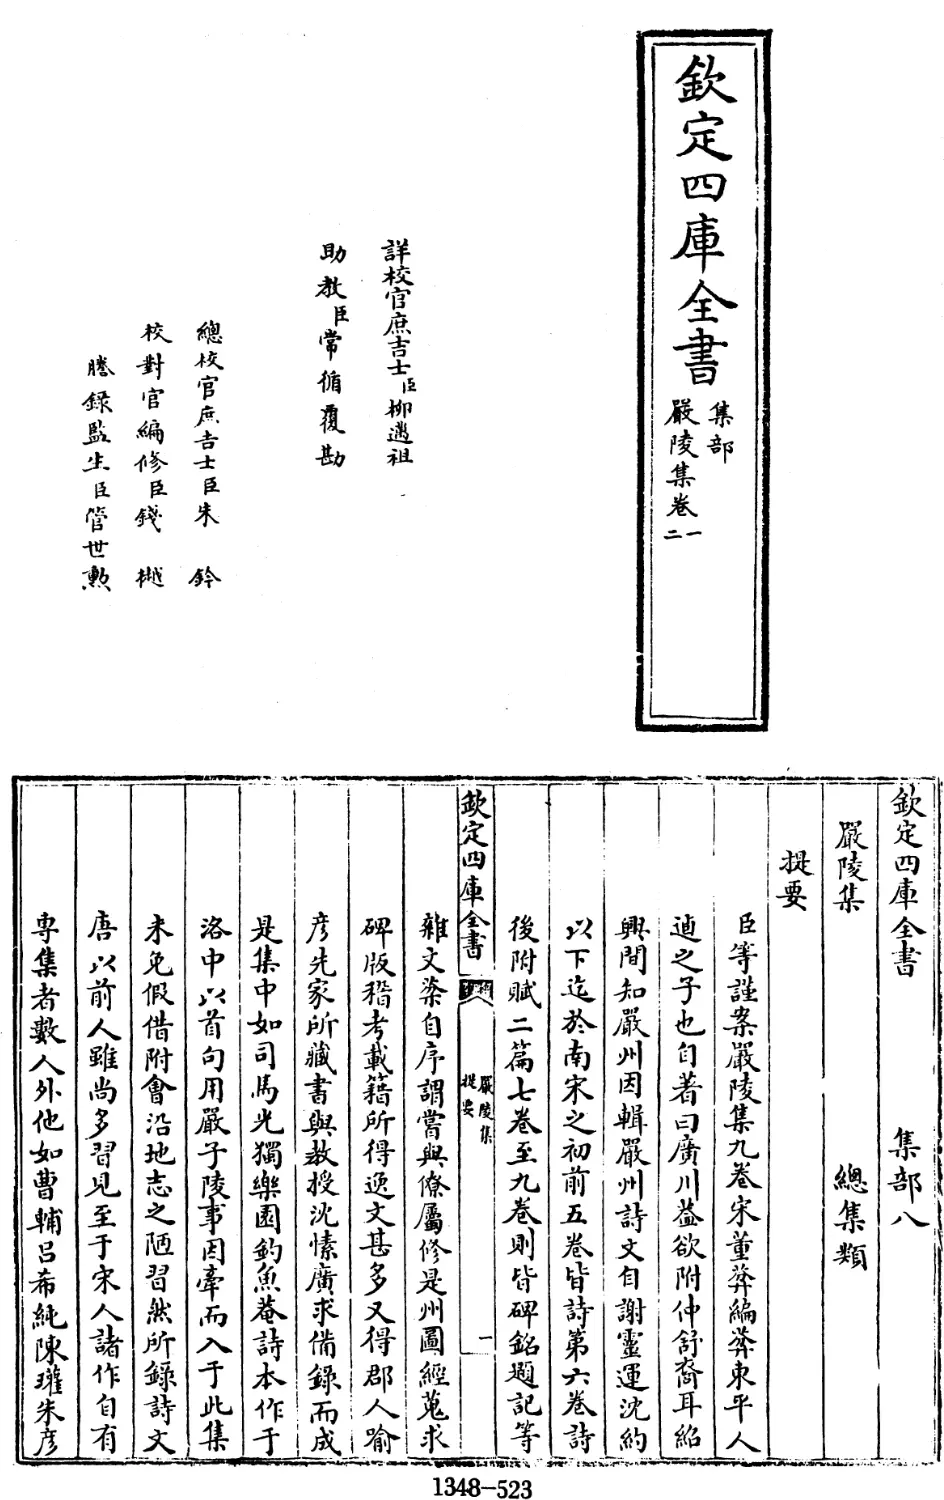 欽定四庫全書
集部
嚴陵集卷一
二
詳校官庶吉士臣柳邁祖
助教臣常循覆勘
總校官庶吉士臣朱鈐
校對官編修臣錢樾
謄錄監生臣管世勲
欽定四庫全書 集部八
嚴陵集 總集類
提要
臣等謹案嚴陵集九卷宋董弅編弅東平人
逌之子也自著曰廣川葢欲附仲舒裔耳紹
興間知嚴州因輯嚴州詩文自謝靈運沈約
以下迄於南宋之初前五卷皆詩第六卷詩
後附賦二篇七卷至九卷則皆碑銘題記等
欽定四庫全書
嚴陵集
提要
一
雜文弅自序謂嘗與僚屬修是州圖經蒐求
碑版稽考載籍所得逸文甚多又得郡人喻
彦先家所藏書與教授沈愫廣求備錄而成
是集中如司馬光獨樂園釣魚菴詩本作于
洛中以首句用嚴子陵事因牽而入于此集
未免假借附會沿地志之陋習然所錄詩文
唐以前人雖尚多習見至于宋人諸作自有
専集者數人外他如曹輔呂希純陳瓘朱彦
1348-523